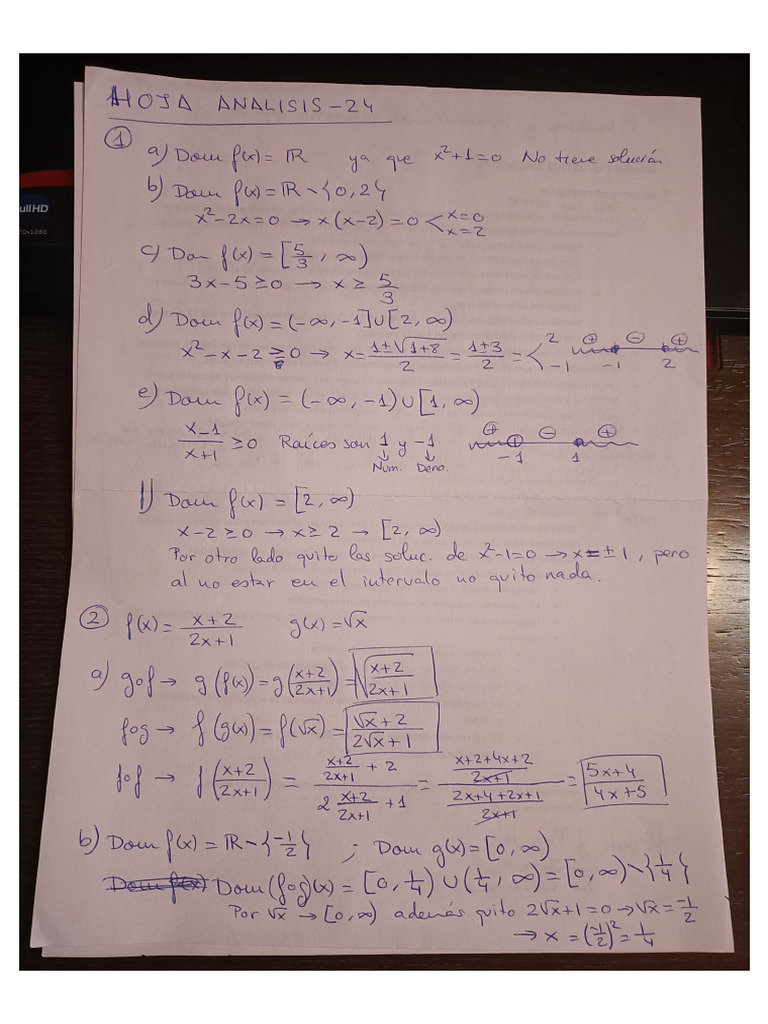 HOJA ANALISIS-24
① a) Dom f(x) = ℝ ya que x²+1=0 No tiene solución
b) Dom f(x) = ℝ \ {0,2}
x²-2x=0 → x(x-2)=0 < x=0 x=2
ullHD
20x1080
c) Dom f(x) = [5/3, ∞)
3x-5≥0 → x ≥ 5/3
d) Dom f(x) = (-∞,-1]∪[2,∞)
x²-x-2 ≥ 0 → x = (1±√(1+8))/2 = (1±3)/2 = < 2 -1 ⊕ ⊖ ⊕ -1 2
e) Dom f(x) = (-∞,-1)∪[1,∞)
(x-1)/(x+1) ≥ 0 Raíces son 1 y -1 ⊕ ⊖ ⊕ -1 1
↓ Num. ↓ Deno.
f) Dom f(x) = [2,∞)
x-2≥0 → x≥2 → [2,∞)
Por otro lado quito las soluc. de x²-1=0 → x=±1, pero
al no estar en el intervalo no quito nada.
② f(x) = (x+2)/(2x+1) g(x)=√x
a) g∘f → g(f(x)) = g((x+2)/(2x+1)) = √((x+2)/(2x+1))
f∘g → f(g(x)) = f(√x) = (√x+2)/(2√x+1)
f∘f → f((x+2)/(2x+1)) = ((x+2)/(2x+1) + 2)/(2 (x+2)/(2x+1) + 1) = ((x+2+4x+2)/(2x+1))/((2x+4+2x+1)/(2x+1)) = (5x+4)/(4x+5)
b) Dom f(x) = ℝ-{-1/2} ; Dom g(x) = [0,∞)
Dom f(x) Dom(f∘g)(x) = [0,1/4)∪(1/4,∞) = [0,∞)\{1/4}
Por √x → [0,∞) además quito 2√x+1=0 → √x = -1/2
→ x = (-1/2)² = 1/4